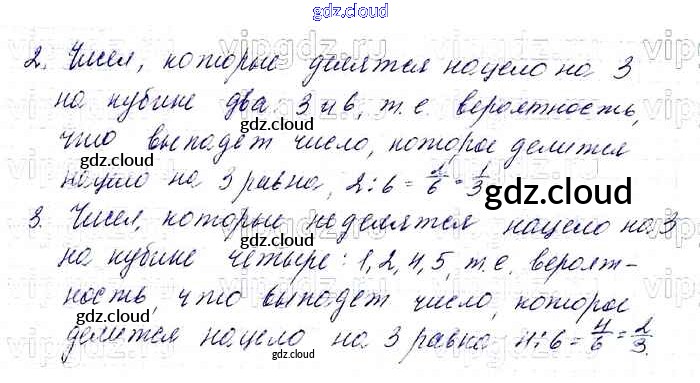 gdz.cloud
2. Чисел, которые делятся нацело на 3
на кубике два: 3 и 6, т.е. вероятность,
что выпадет число, которое делится
gdz.cloud
gdz.cloud
нацело на 3 равна, 2:6 = 2/6 = 1/3
gdz.cloud
gdz.cloud
3. Чисел, которые не делятся нацело на 3
gdz.cloud
на кубике четыре: 1, 2, 4, 5, т.е. вероят-
ность, что выпадет число, которое
gdz.cloud
делится нацело на 3 равна 4:6 = 4/6 = 2/3.
gdz.cloud